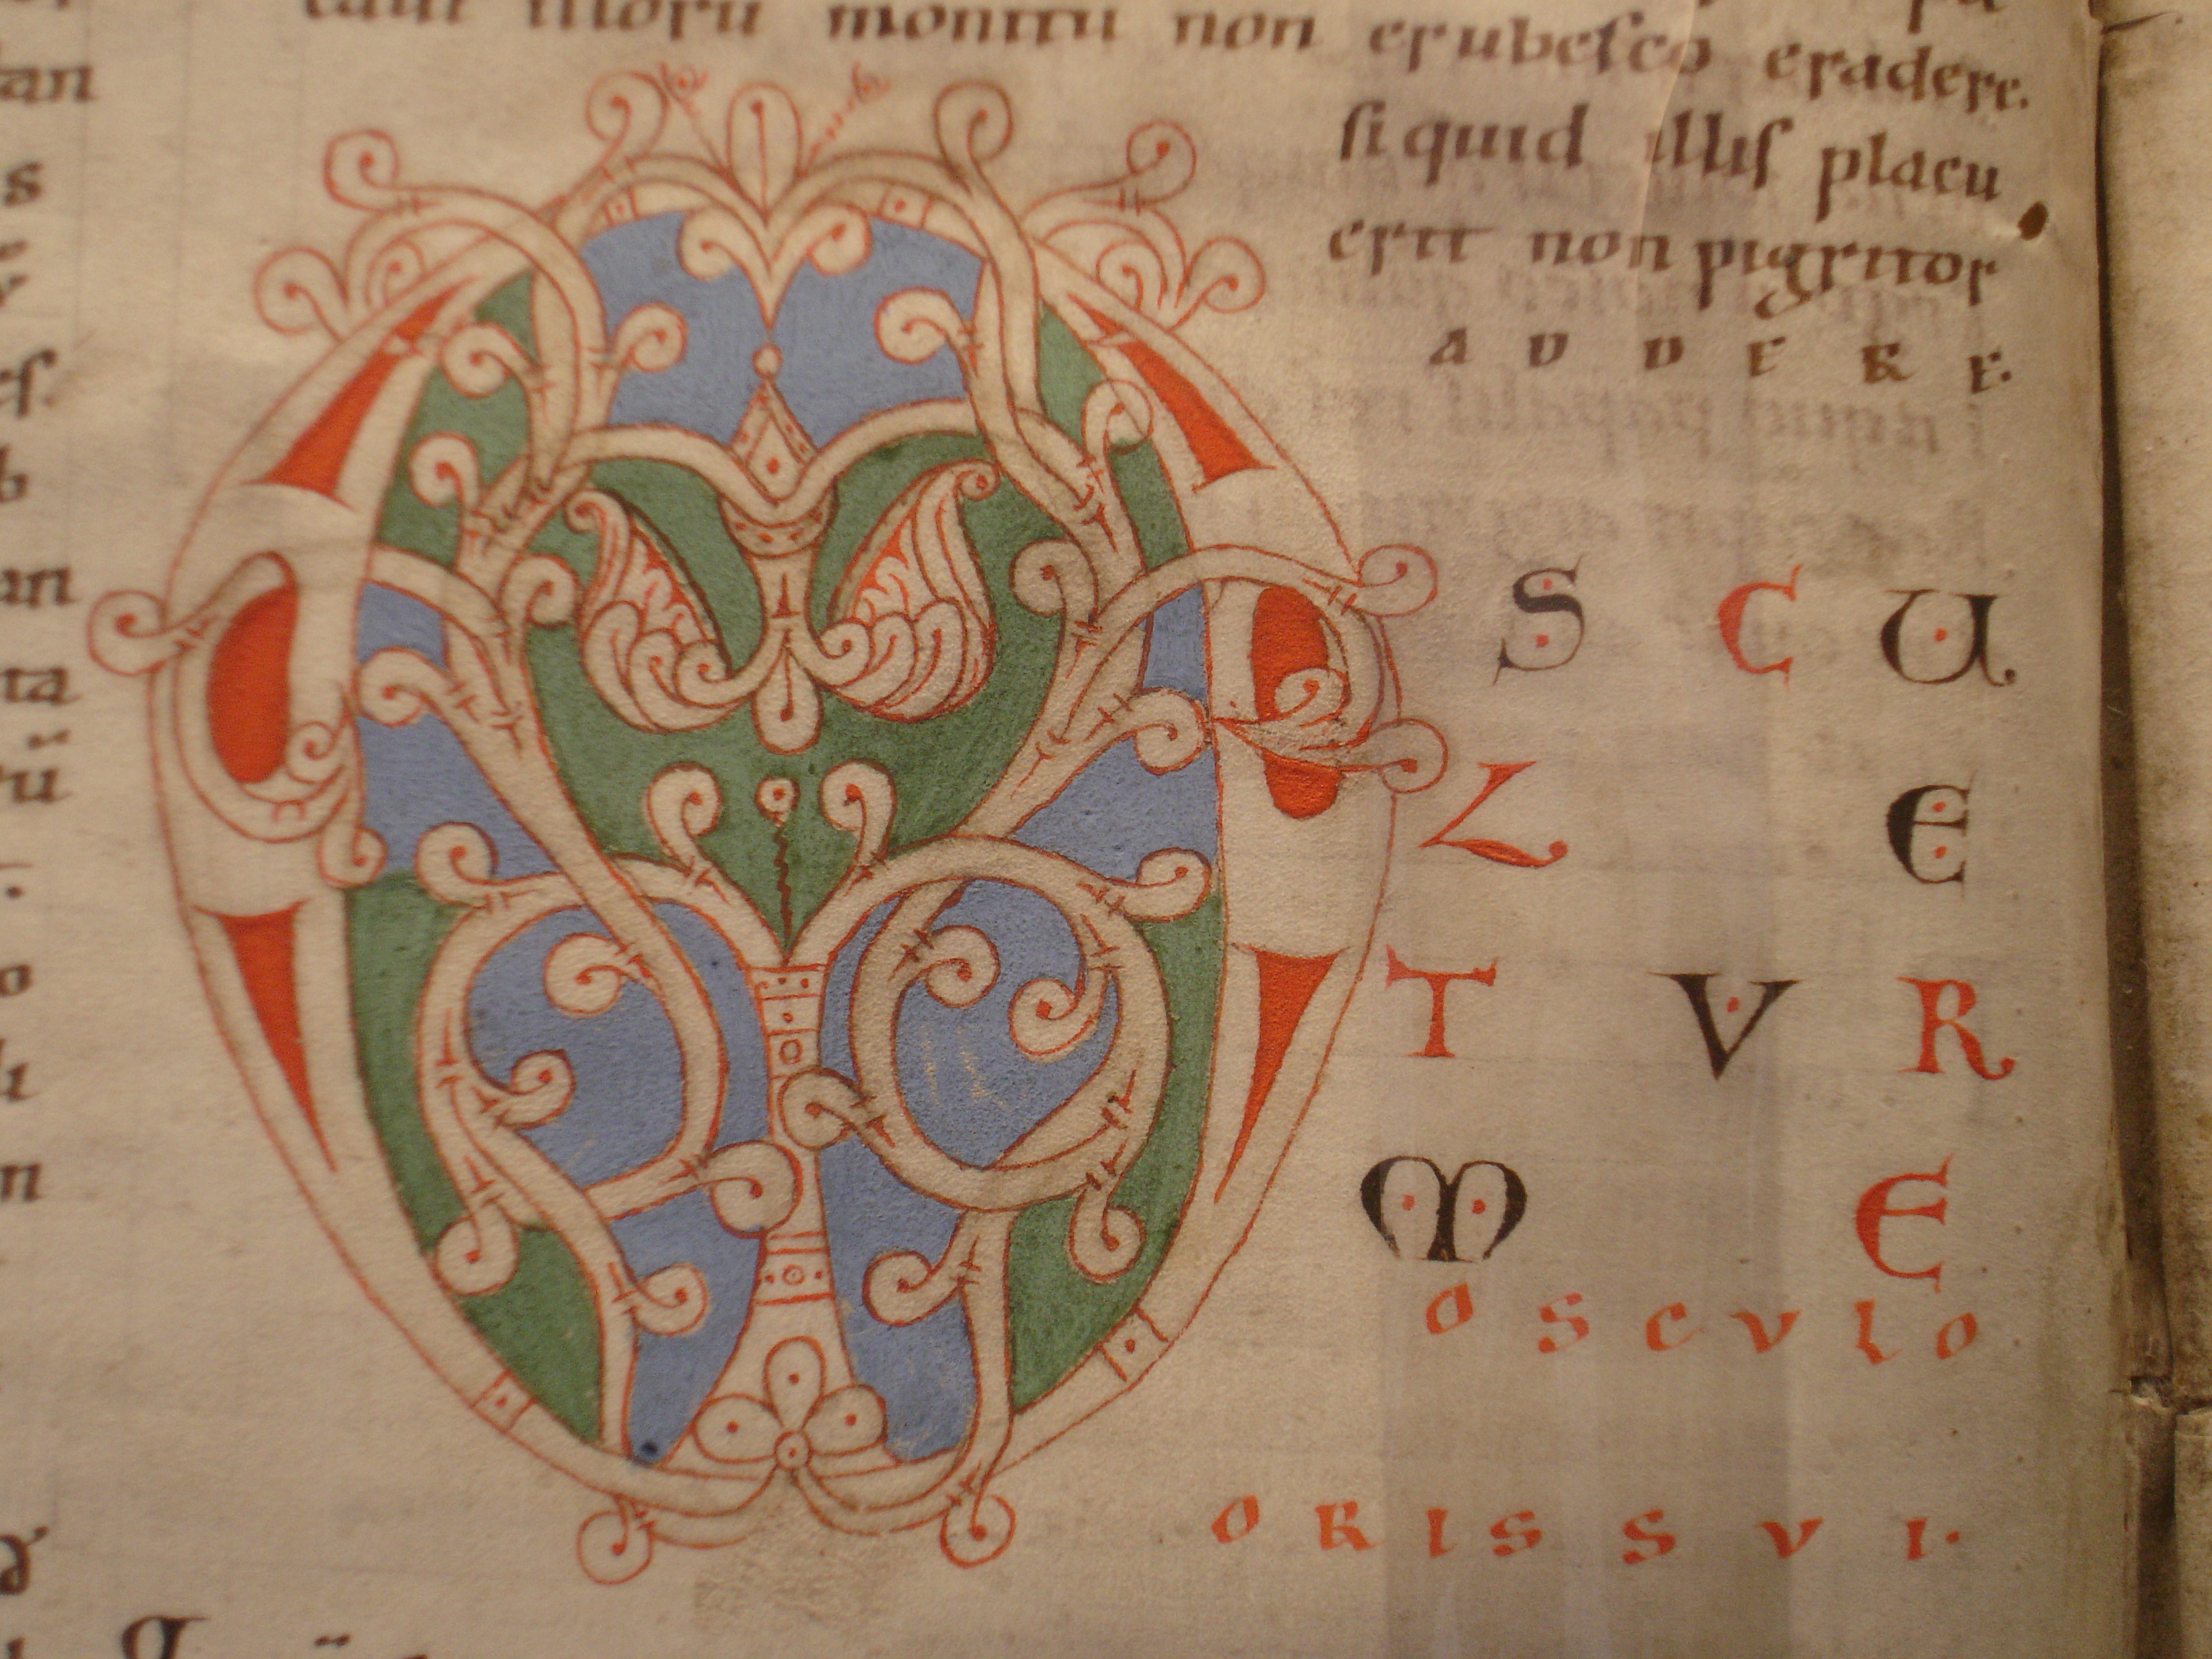 an
s
monitu non erubeſco eradere.
ſi quid illiſ placu
erit non pigritor
A D D E R E.
an
ta
O S C U
L E
T V R
M E
O S C V L O
O R I S S V I.